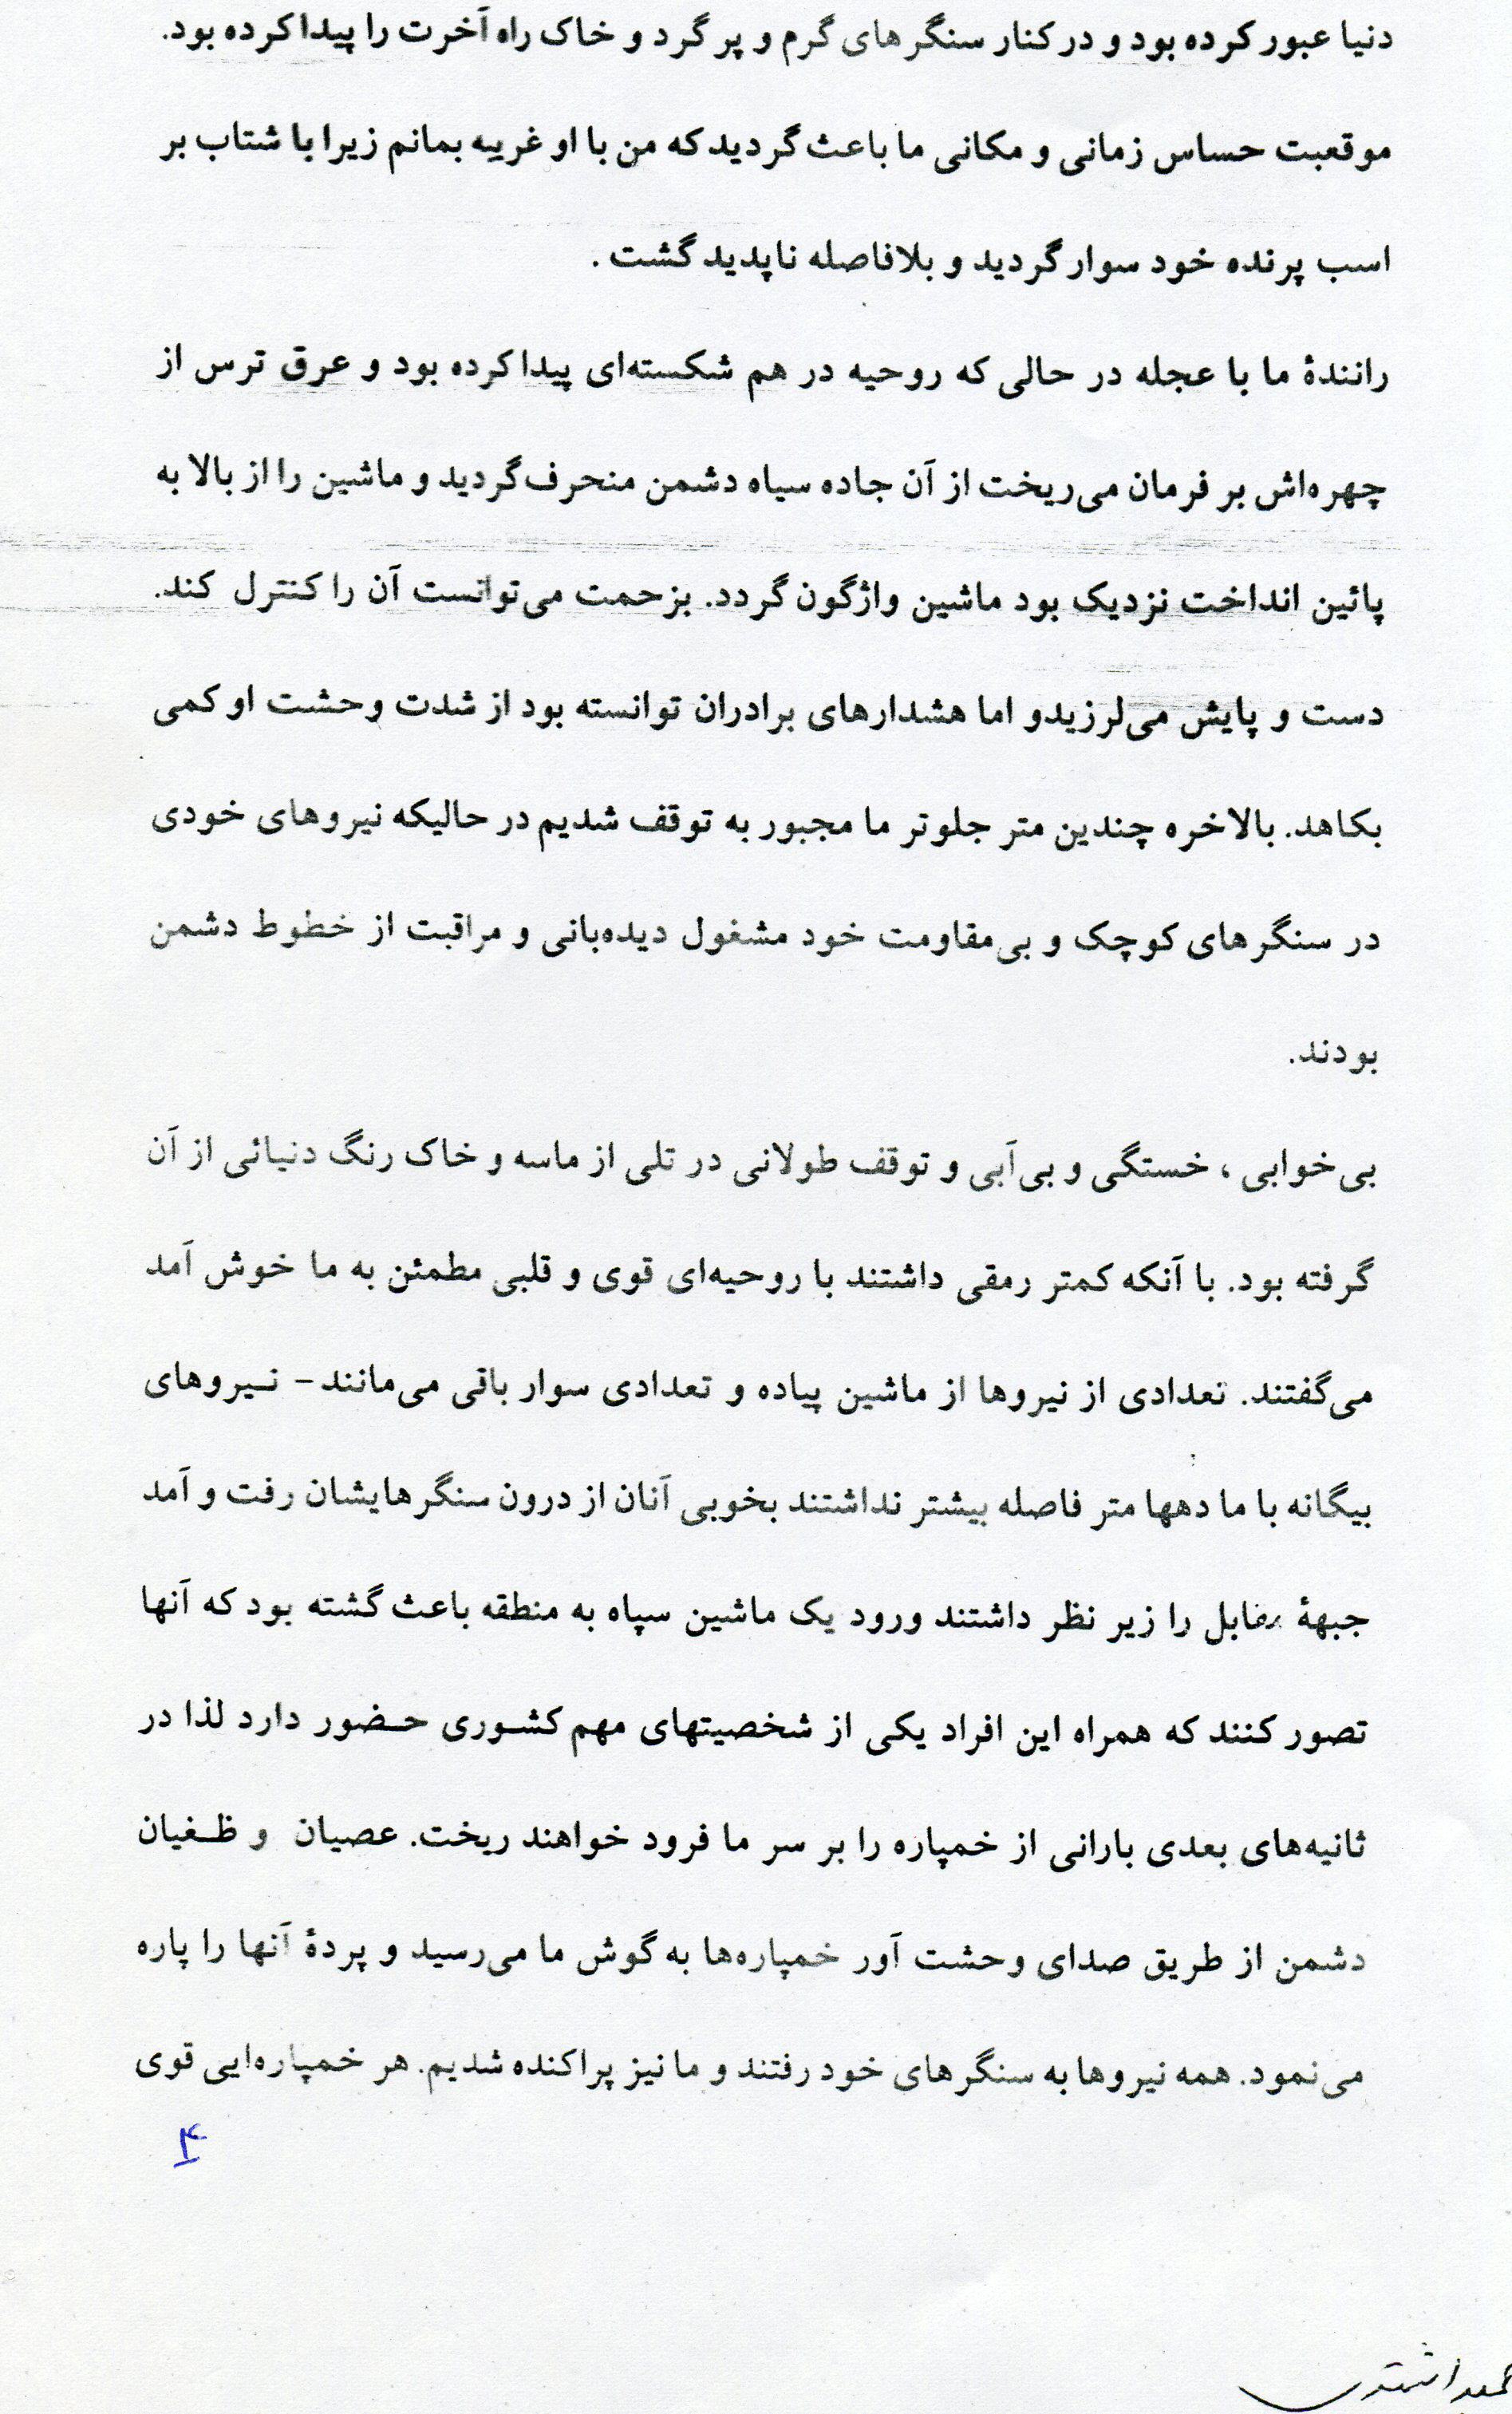 دنیا عبور کرده بود و در کنار سنگرهای گرم و پر گرد و خاک راه آخرت را پیدا کرده بود.
موقعبت حساس زمانی و مکانی ما باعث گردید که من با او غریبه بمانم زیرا با شتاب بر
اسب پرنده خود سوار گردید و بلافاصله ناپدید گشت .
رانندهٔ ما با عجله در حالی که روحیه در هم شکسته‌ای پیدا کرده بود و عرق ترس از
چهره‌اش بر فرمان می‌ریخت از آن جاده سیاه دشمن منحرف گردید و ماشین را از بالا به
پائین انداخت نزدیک بود ماشین واژگون گردد. بزحمت می‌توانست آن را کنترل کند.
دست و پایش می‌لرزیدو اما هشدارهای برادران توانسته بود از شدت وحشت او کمی
بکاهد. بالاخره چندین متر جلوتر ما مجبور به توقف شدیم در حالیکه نیروهای خودی
در سنگرهای کوچک و بی‌مقاومت خود مشغول دیده‌بانی و مراقبت از خطوط دشمن
بودند.
بی‌خوابی ، خستگی و بی‌آبی و توقف طولانی در تلی از ماسه و خاک رنگ دنیائی از آن
گرفته بود. با آنکه کمتر رمقی داشتند با روحیه‌ای قوی و قلبی مطمئن به ما خوش آمد
می‌گفتند. تعدادی از نیروها از ماشین پیاده و تعدادی سوار باقی می‌مانند - نـیروهای
بیگانه با ما دهها متر فاصله بیشتر نداشتند بخوبی آنان از درون سنگرهایشان رفت و آمد
جبههٔ مقابل را زیر نظر داشتند ورود یک ماشین سپاه به منطقه باعث گشته بود که آنها
تصور کنند که همراه این افراد یکی از شخصیتهای مهم کشـوری حـضور دارد لذا در
ثانیه‌های بعدی بارانی از خمپاره را بر سر ما فرود خواهند ریخت. عصیان و ظـغیان
دشمن از طریق صدای وحشت آور خمپاره‌ها به گوش ما می‌رسید و پردهٔ آنها را پاره
می‌نمود. همه نیروها به سنگرهای خود رفتند و ما نیز پراکنده شدیم. هر خمپاره‌ایی قوی
۴